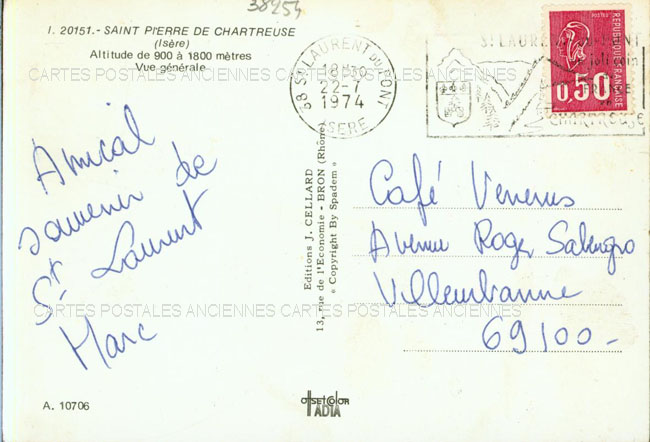 38454
I. 20151.- SAINT PIERRE DE CHARTREUSE
(Isère)
Altitude de 900 à 1800 mètres
Vue générale
CARTES POSTALES ANCIENNES CARTES POSTALES ANCIENNES
38 ST LAURENT DU PONT
18H30
22-7
1974
ISERE
ST LAURENT DU PONT
CHARTREUSE
POSTES
REPUBLIQUE FRANÇAISE
0,50
Amical
souvenir de
St Laurent
Marc
Editions J. CELLARD
13, rue de l'Economie - BRON (Rhône)
« Copyright By Spadem »
Café Venerus
Avenue Roger Salengro
Villeurbanne
69100-
CARTES POSTALES ANCIENNES CARTES POSTALES ANCIENNES
A. 10706
OFFSETCOLOR
IADIA